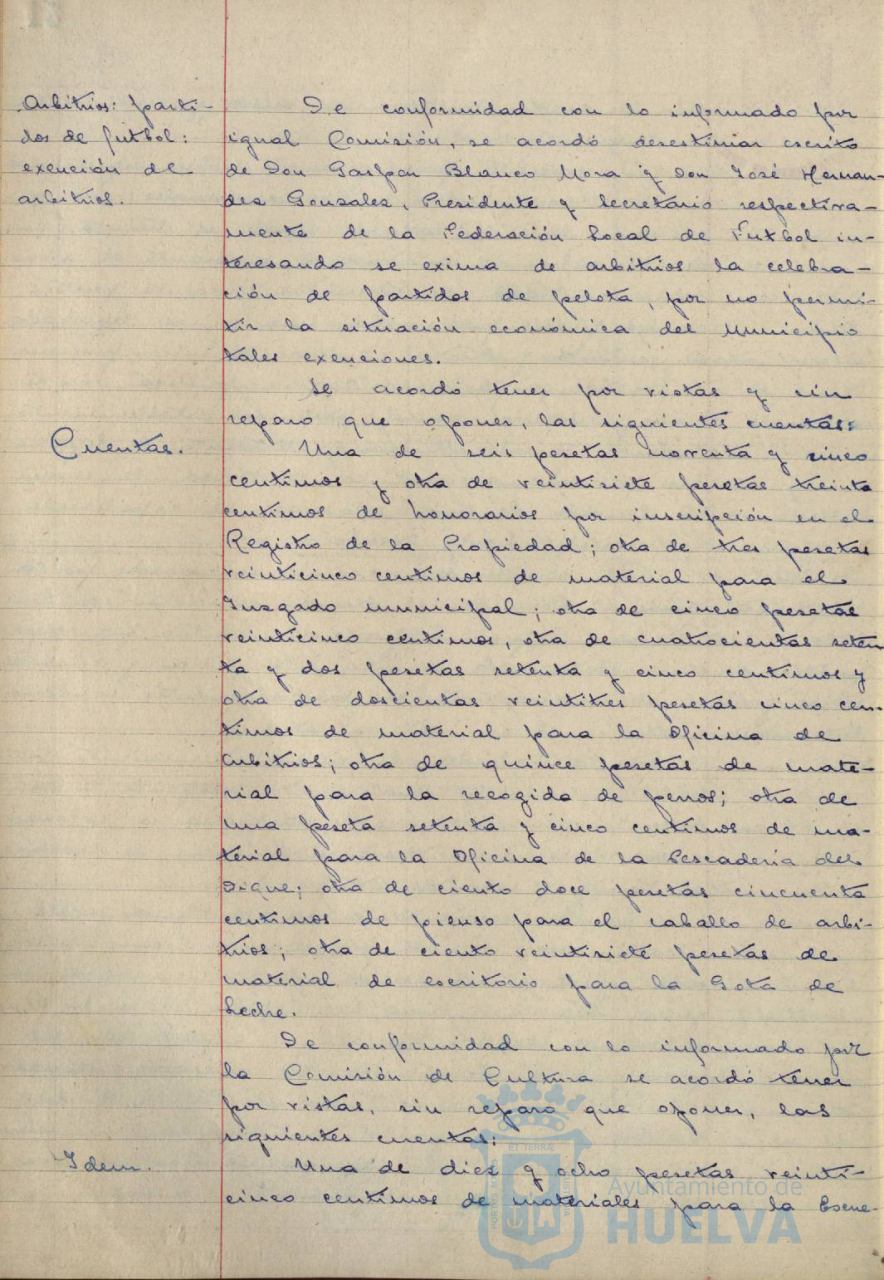 Arbitrios: parti-
dos de futbol:
exención de
arbitrios.
De conformidad con lo informado por
igual Comisión, se acordó desestimar escrito
de Don Gaspar Blanco Mora y Don José Hernan-
dez Gonzalez, Presidente y Secretario respectiva-
mente de la Federación Local de Futbol in-
teresando se exima de arbitrios la celebra-
ción de partidos de pelota, por no permi-
tir la situación económica del Municipio
tales exenciones.
Se acordó tener por vistas y sin
reparo que oponer, las siguientes cuentas:
Cuentas.
Una de seis pesetas noventa y cinco
centimos y otra de veintisiete pesetas treinta
centimos de honorarios por inscripción en el
Registro de la Propiedad; otra de tres pesetas
veinticinco centimos de material para el
Juzgado municipal; otra de cinco pesetas
veinticinco centimos, otra de cuatrocientas seten
ta y dos pesetas setenta y cinco centimos y
otra de doscientas veintitres pesetas cinco cen-
timos de material para la Oficina de
Arbitrios; otra de quince pesetas de mate-
rial para la recogida de perros; otra de
una peseta setenta y cinco centimos de ma-
terial para la Oficina de la Pescadería del
Dique; otra de ciento doce pesetas cincuenta
centimos de pienso para el caballo de arbi-
trios; otra de ciento veintisiete pesetas de
material de escritorio para la Gota de
Leche.
De conformidad con lo informado por
la Comisión de Cultura se acordó tener
por vistas, sin reparo que oponer, las
siguientes cuentas:
Idem.
Una de diez y ocho pesetas veinti-
cinco centimos de materiales para la Escue-
Ayuntamiento de
HUELVA